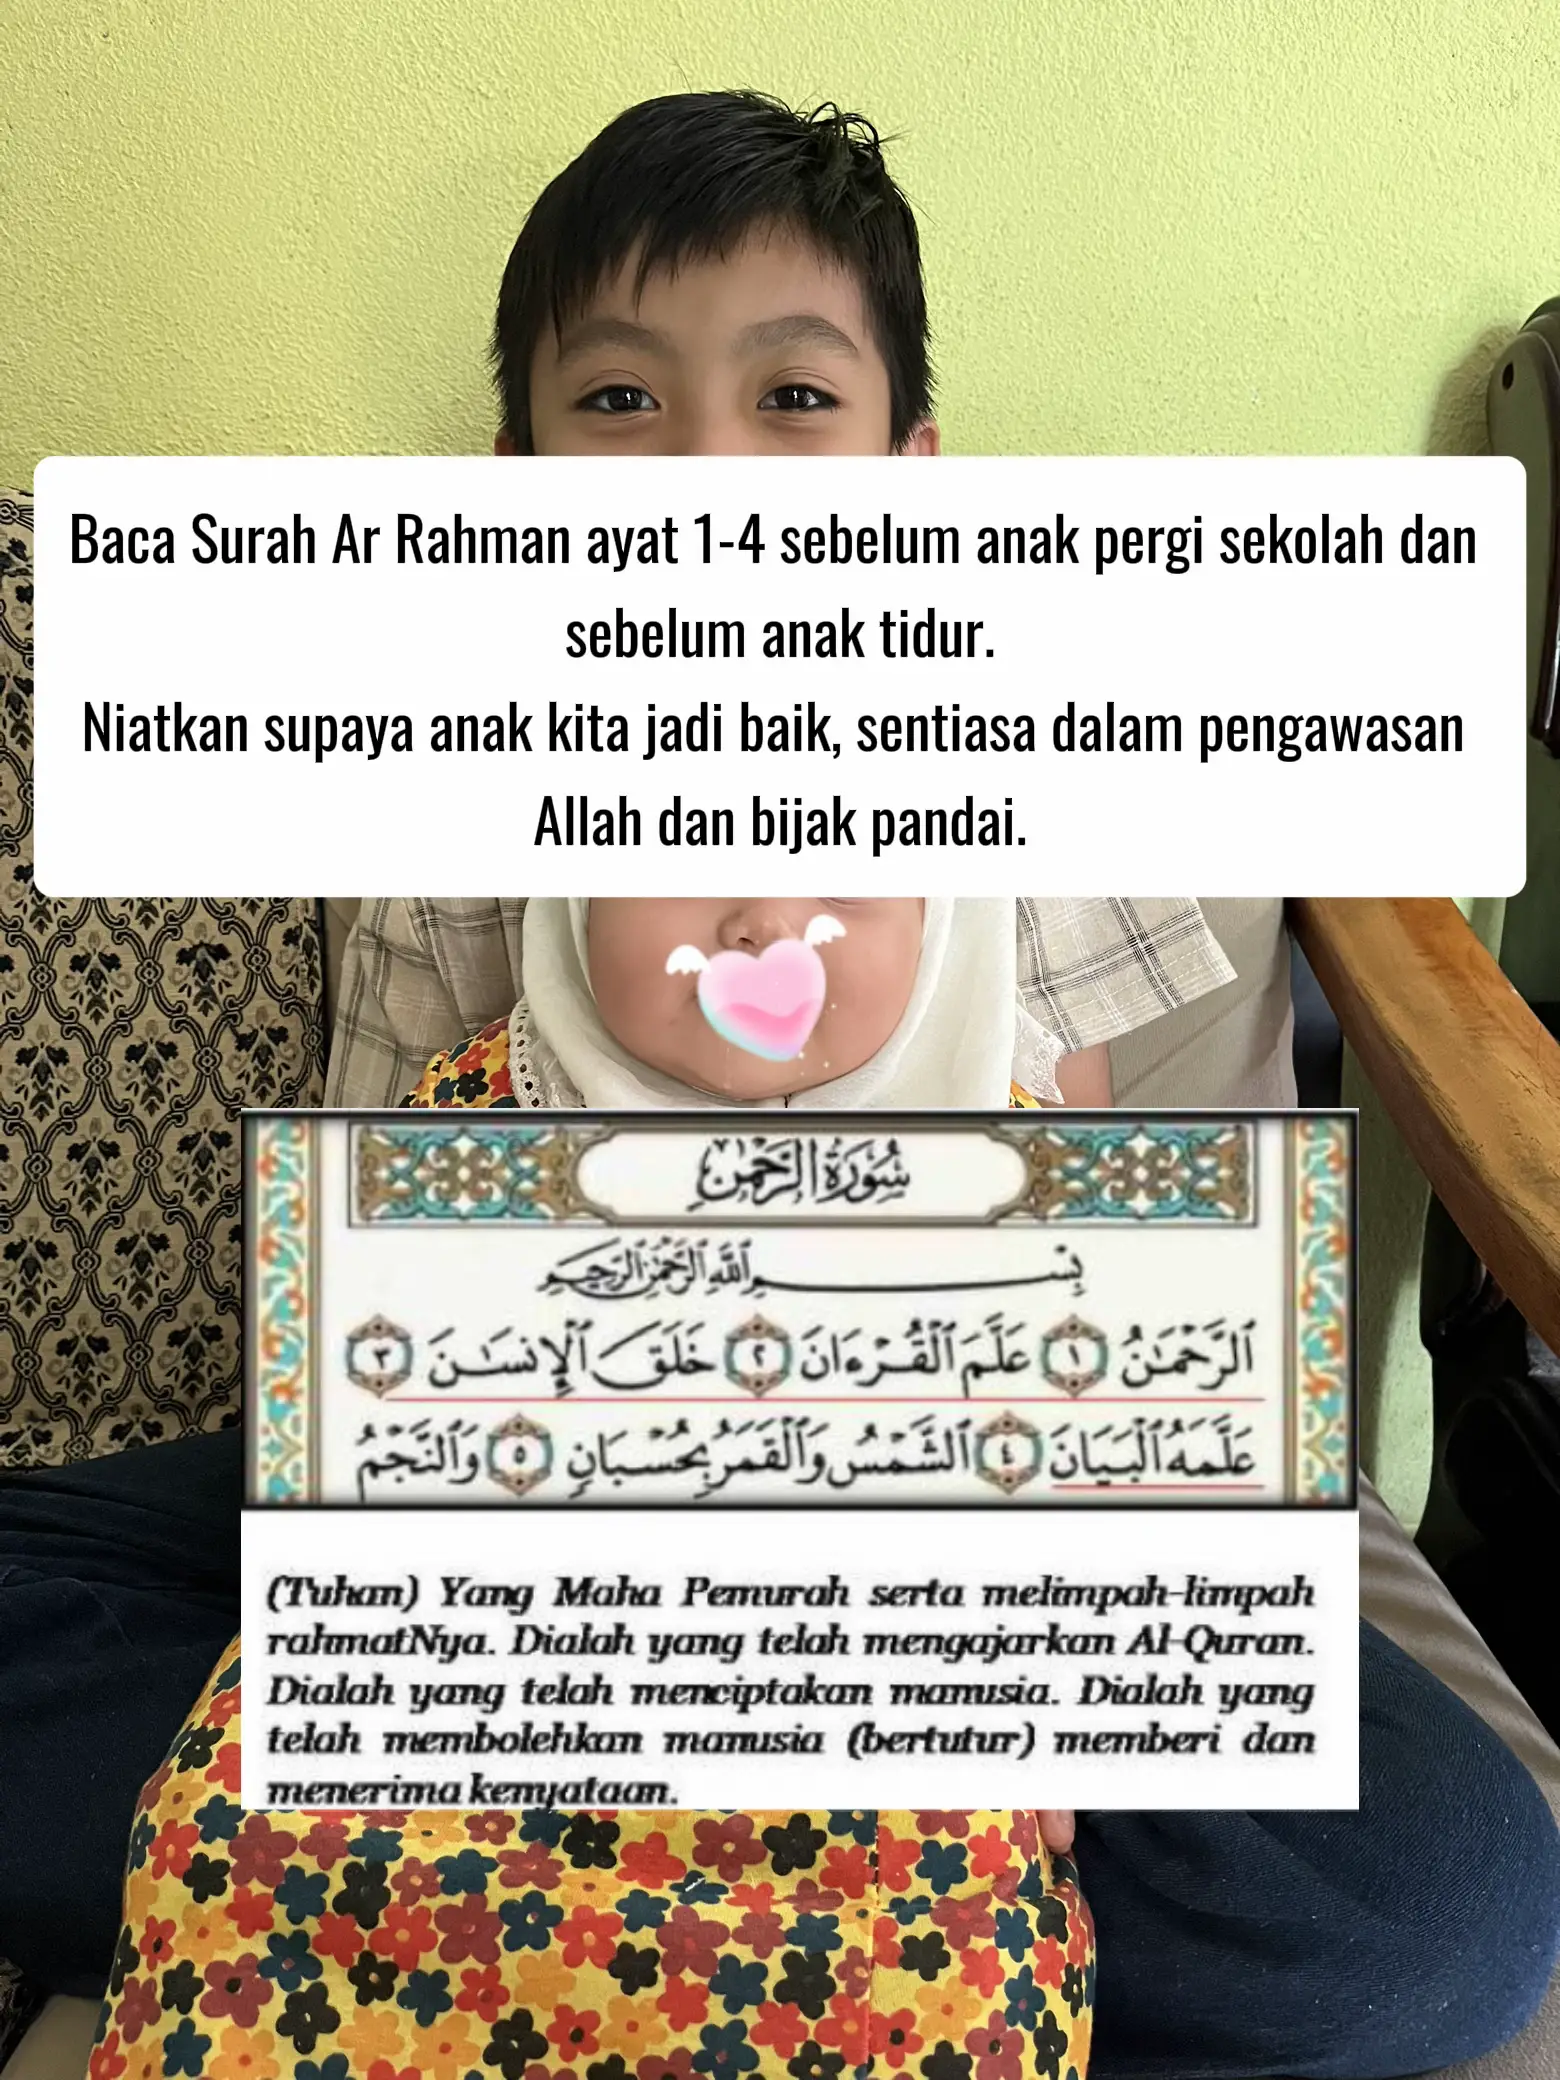 Baca Surah Ar Rahman ayat 1-4 sebelum anak pergi sekolah dan
sebelum anak tidur.
Niatkan supaya anak kita jadi baik, sentiasa dalam pengawasan
Allah dan bijak pandai.
سُورَةُ الرَّحْمَٰن
بِسْمِ ٱللَّهِ ٱلرَّحْمَٰنِ ٱلرَّحِيمِ
ٱلرَّحْمَٰنُ ١ عَلَّمَ ٱلْقُرْءَانَ ٢ خَلَقَ ٱلْإِنسَٰنَ ٣
عَلَّمَهُ ٱلْبَيَانَ ٤ ٱلشَّمْسُ وَٱلْقَمَرُ بِحُسْبَانٍ ٥ وَٱلنَّجْمُ
(Tuhan) Yang Maha Pemurah serta melimpah-limpah
rahmatNya. Dialah yang telah mengajarkan Al-Quran.
Dialah yang telah menciptakan manusia. Dialah yang
telah membolehkan manusia (bertutur) memberi dan
menerima kenyataan.